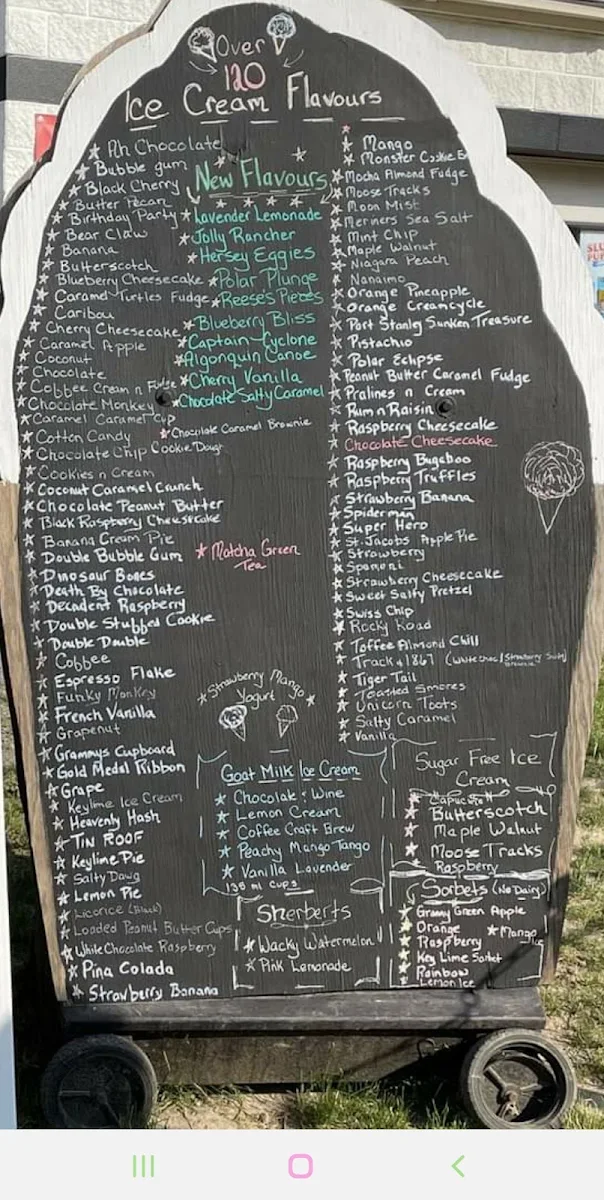 Over
120
Ice Cream Flavours
Ah Chocolate
Bubble gum
Black Cherry
Butter Pecan
Birthday Party
Bear Claw
Banana
Butterscotch
Blueberry Cheesecake
Caramel Turtles Fudge
Caribou
Cherry Cheesecake
Caramel Apple
Coconut
Chocolate
Coffee Cream n Fudge
Chocolate Monkey
Caramel Caramel Cup
Cotton Candy
Chocolate Chip Cookie Dough
Cookies n Cream
Coconut Caramel Crunch
Chocolate Peanut Butter
Black Raspberry Cheesecake
Banana Cream Pie
Double Bubble Gum
Dinosaur Bones
Death By Chocolate
Decadent Raspberry
Double Stuffed Cookie
Double Double
Coffee
Espresso Flake
Funky Monkey
French Vanilla
Grapenut
Grammys Cupboard
Gold Medal Ribbon
Grape
Keylime Ice Cream
Heavenly Hash
TIN ROOF
Keylime Pie
Salty Dawg
Lemon Pie
Licorice (Black)
Loaded Peanut Butter Cups
White Chocolate Raspberry
Pina Colada
Strawberry Banana
New Flavours
Lavender Lemonade
Jolly Rancher
Hersey Eggies
Polar Plunge
Reese's Pieces
Blueberry Bliss
Captain Cyclone
Algonquin Canoe
Cherry Vanilla
Chocolate Salty Caramel
Chocolate Caramel Brownie
Matcha Green
Tea
Strawberry Mango
Yogurt
Mango
Monster Cookie
Mocha Almond Fudge
Moose Tracks
Moon Mist
Meriners Sea Salt
Mint Chip
Maple Walnut
Niagara Peach
Nanaimo
Orange Pineapple
Orange Creamcycle
Port Stanley Sunken Treasure
Pistachio
Polar Eclipse
Peanut Butter Caramel Fudge
Pralines n Cream
Rum n Raisin
Raspberry Cheesecake
Chocolate Cheesecake
Raspberry Bugaboo
Raspberry Truffles
Strawberry Banana
Spiderman
Super Hero
St. Jacobs Apple Pie
Strawberry
Spamoni
Strawberry Cheesecake
Sweet Salty Pretzel
Swiss Chip
Rocky Road
Toffee Almond Chill
Track 1867 (White Choc/Strawberry
Tiger Tail
Toasted Smores
Unicorn Toots
Salty Caramel
Vanilla
Goat Milk Ice Cream
Chocolate : Wine
Lemon Cream
Coffee Craft Brew
Peachy Mango Tango
Vanilla Lavender
138 ml cups
Sherberts
Wacky Watermelon
Pink Lemonade
Sugar Free Ice
Cream
Butterscotch
Maple Walnut
Moose Tracks
Raspberry
Sorbets (No Dairy)
Granny Green Apple
Orange
Mango
Raspberry
Key Lime Sorbet
Rainbow
Lemon Ice